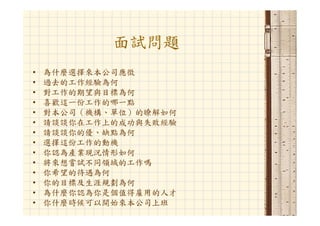 面試問題
• 為什麼選擇來本公司應徵
• 過去的工作經驗為何
• 對工作的期望與目標為何
• 喜歡這一份工作的哪一點
• 對本公司（機構、單位）的瞭解如何
• 請談談你在工作上的成功與失敗經驗
• 請談談你的優、缺點為何
• 選擇這份工作的動機
• 你認為產業現況情形如何
• 將來想嘗試不同領域的工作嗎
• 你希望的待遇為何
• 你的目標及生涯規劃為何
• 為什麼你認為你是個值得雇用的人才
• 你什麼時候可以開始來本公司上班